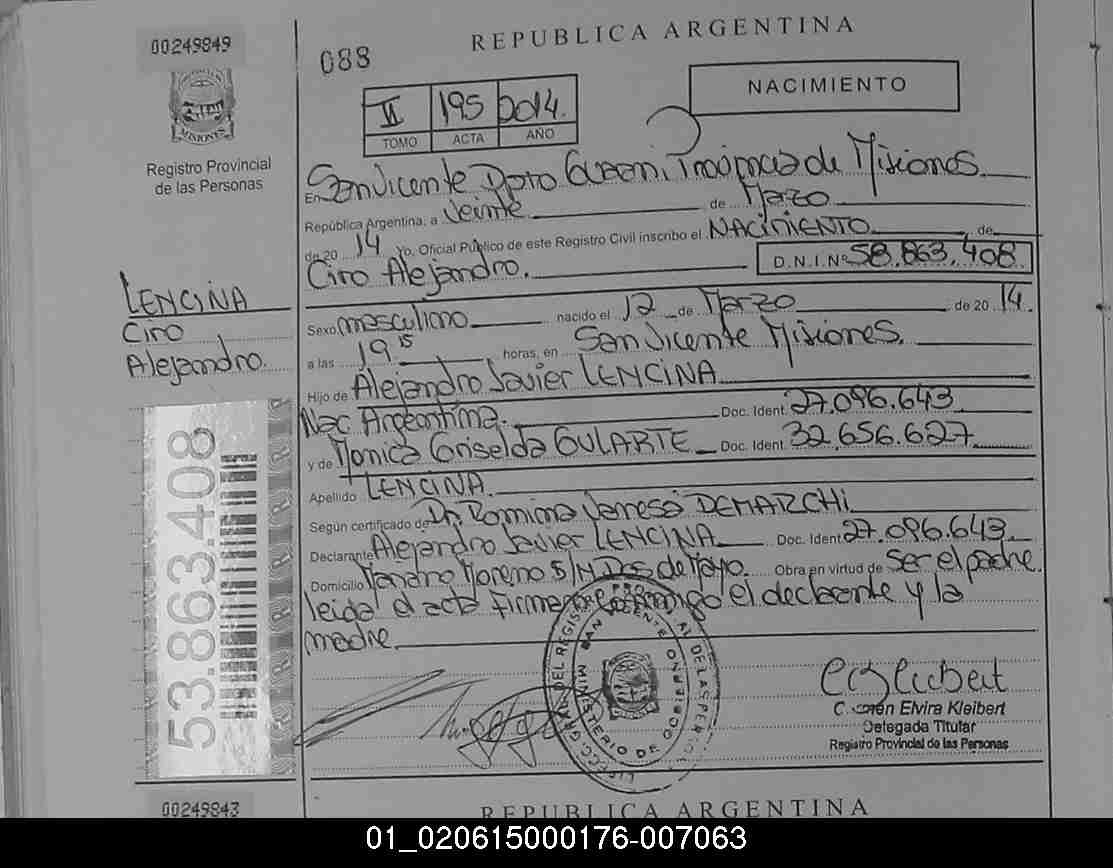 00249849
088
REPUBLICA ARGENTINA
MISIONES
Registro Provincial
de las Personas
II 195 2014.
TOMO ACTA AÑO
NACIMIENTO
En San Vicente Dpto Guarani, Provincia de Misiones
República Argentina, a Veinte de Marzo
de 20 14 Yo, Oficial Público de este Registro Civil inscribo el NACIMIENTO de
Ciro Alejandro. D.N.I.Nº 58.863.408
LENCINA
Ciro
Alejandro.
Sexo masculino nacido el 12 de Marzo de 20 14.
a las 19 15 horas, en San Vicente Misiones.
Hijo de Alejandro Javier LENCINA
Nac Argentina. Doc. Ident. 27.096.643
y de Monica Griselda GULARTE Doc. Ident. 32.656.627
Apellido LENCINA
Según certificado de Dr. Romina Vanesa DEMARCHI
Declarante Alejandro Javier LENCINA Doc. Ident. 27.096.643
Domicilio Mariano Moreno S/N Dos de Mayo. Obra en virtud de ser el padre
leida el acta firman conmigo el declarante y la
madre
53.863.408
DEL REGISTRO
SAN VICENTE
MINISTERIO DE GOBIERNO
Carmen Elvira Kleibert
Delegada Titular
Registro Provincial de las Personas
00249843
REPUBLICA ARGENTINA
01_020615000176-007063